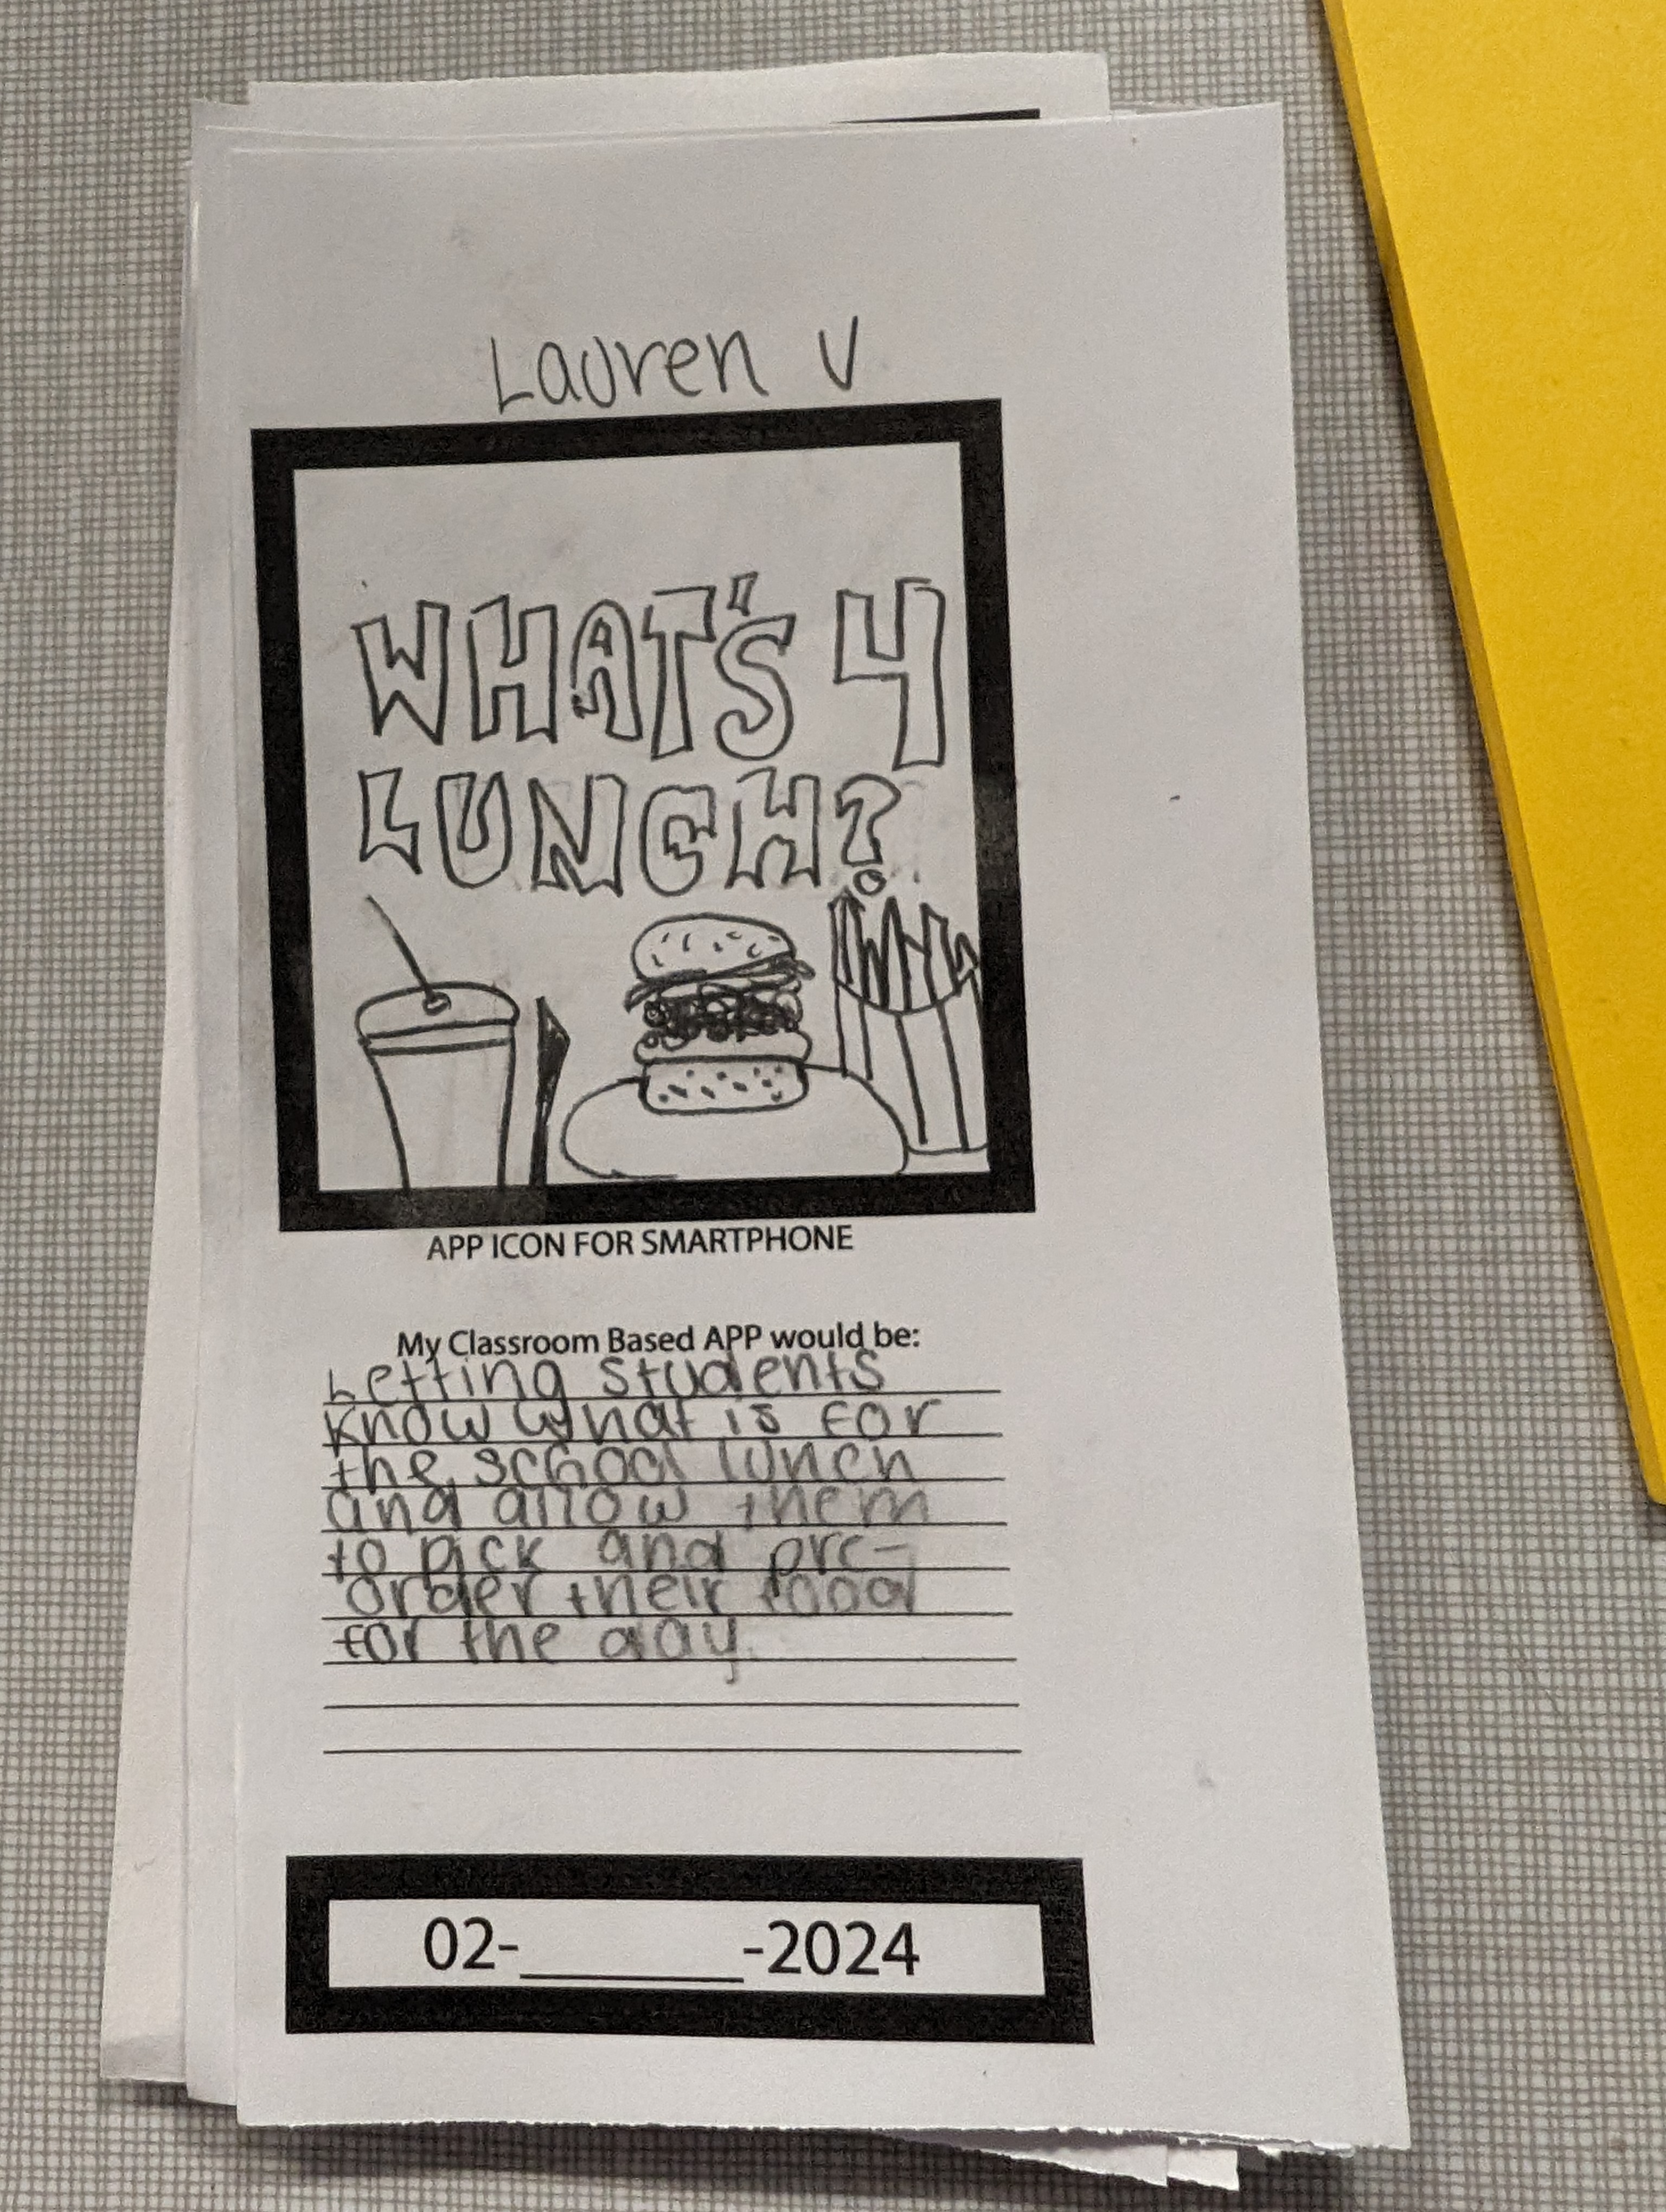 Lauren V
WHAT'S 4
LUNCH?
APP ICON FOR SMARTPHONE
My Classroom Based APP would be:
Letting students
know what is for
the school lunch
and allow them
to pick and pre-
order their food
for the day.
02-______-2024